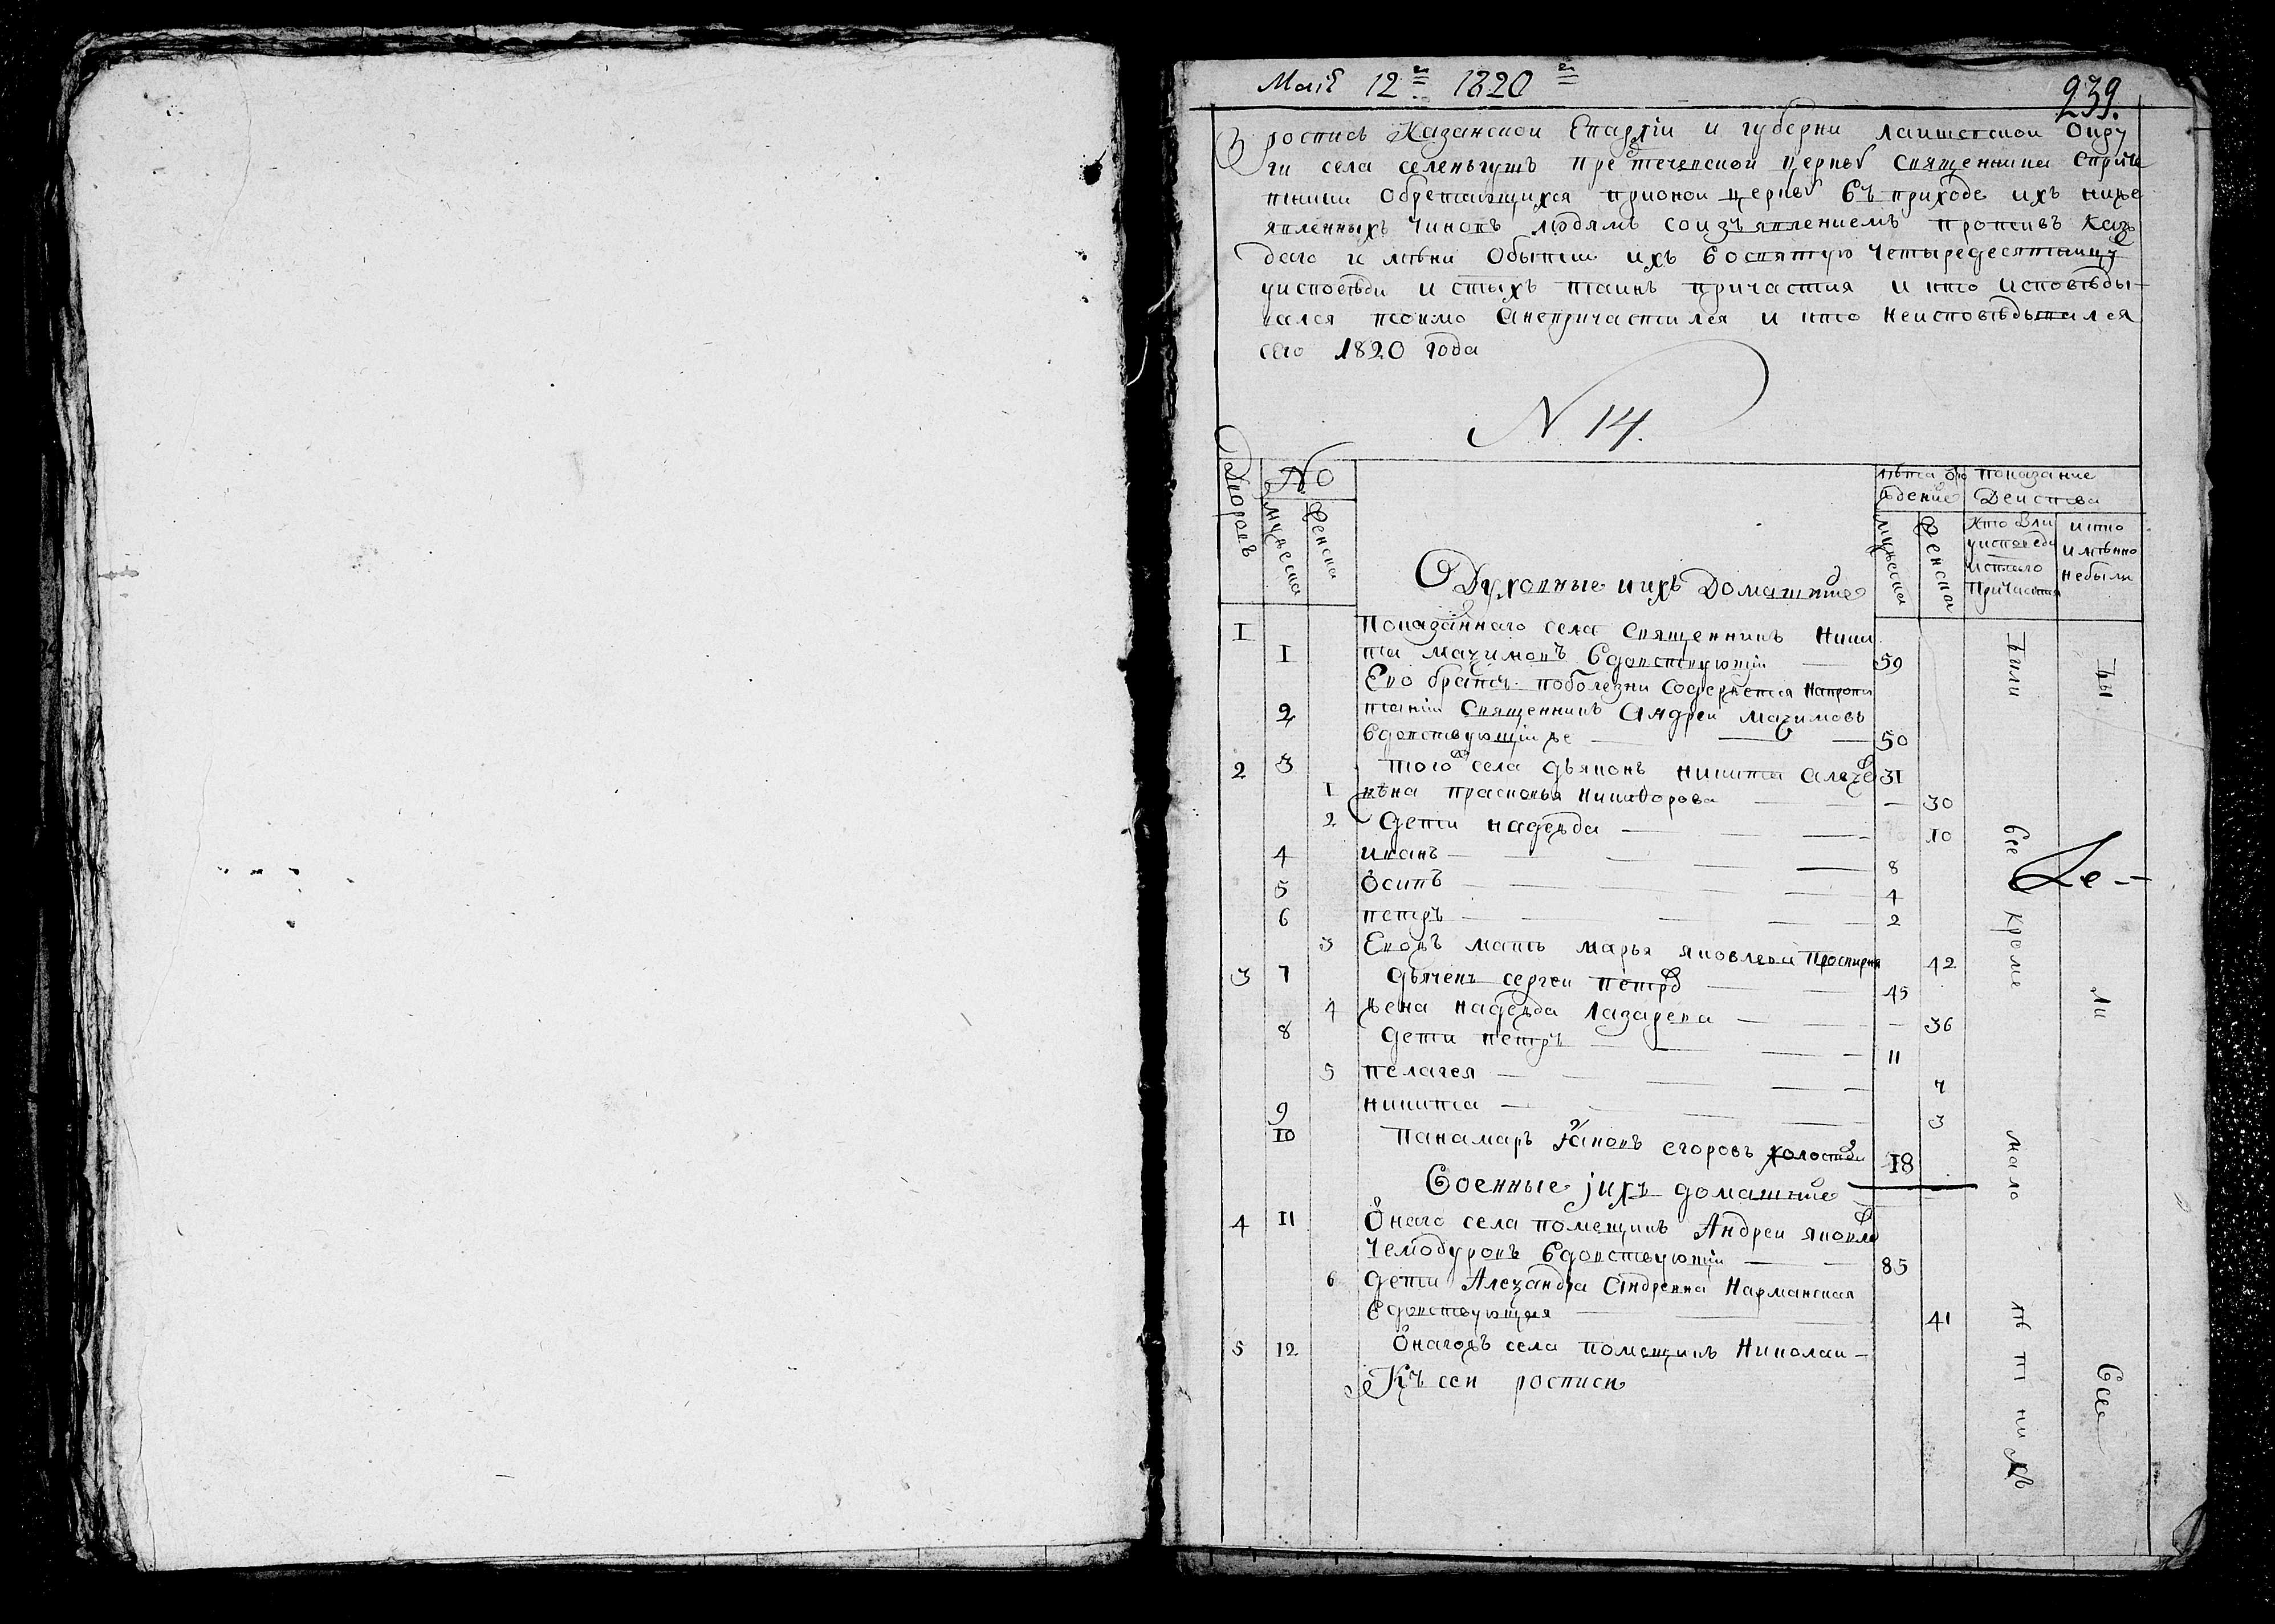 Маiя 12го 1820го
239.
роспись Казанской Епархiи и губерни лаишевской Окру
ги села селенгушъ предтеченской церкви священника сприче
тники Обретающихся прионой церкви въ приходе ихъ ниже
явленныхъ чиновъ людямъ соизъявлениемъ противъ каж
даго имѣни Обытии ихъ восвятую четыредесятницу
уисповѣди и стыхъ таинъ причастия и кто исповѣды-
вался токмо анепричастился и кто неисповѣдывался
сего 1820 года
N 14.
Дворовъ
No
мужеска
Женска
лѣта от рождение
показание Действа
мужеска
Женска
Кто Были уисповеди истаго Причастия
икто имѣнно небыли
Духовные иихъ Домашние
1 1 Показаннаго села Священникъ Ники
та мачимовъ вдовствующiи — 59
Ево братъ поболезни Содержется Напропи
2 танiи Священникъ Андреи мачимовъ
вдовствующiи же — 50
2 3 того села дьяконъ никита 31
1 жѣна прасковья никифорова — 30
2 дети надежда — 10
4 иванъ — 8
5 осипъ — 4
6 петръ — 2
3 Еновъ мать марья яковлева Просвирня 42
3 7 дьячекъ сергеи петровъ — 45
4 жена надежда Лазарева — 36
8 дети петръ — 11
5 пелагея — 7
9 никита — 3
10 панамарь Яковъ егоровъ холостой 18
Военные iихъ домашние
4 11 Онаго села помещикъ Андреи яковле
Чемодуровъ вдовствующiи — 85
6 дети Алеѯандра Андревна Нармансная
вдовствующая — 41
5 12 Онагожъ села помещикъ Николаи –
Къ сеи росписи
Были
все
Кроме
мало
лѣтнихъ
Бы
ли
Все